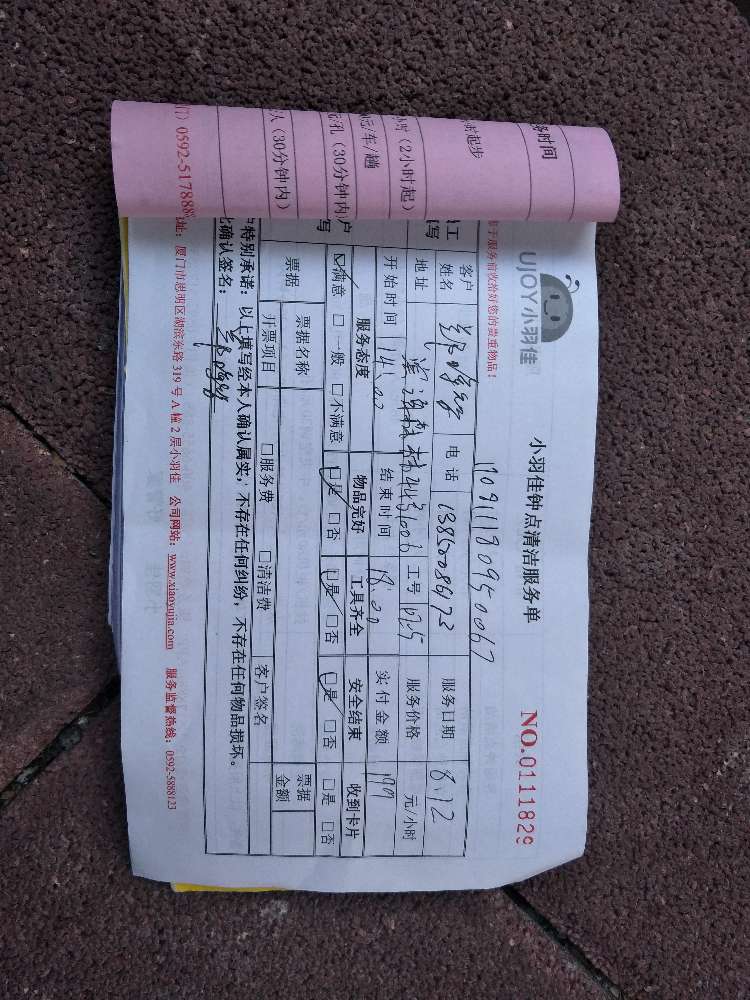 务时间
时起步
小时（2小时起）
0元/车/趟
元/孔（30分钟内）
人（30分钟内）
门）0592-517888
UJOY小羽佳
小羽佳钟点清洁服务单
NO.0111829
于服务前收拾好您的贵重物品！
1091118095 0067
客户姓名 电话 服务日期 8.12
地址 工号 1025 服务价格 元/小时
开始时间 14:00 结束时间 18:00 实付金额
服务态度 物品完好 工具齐全 安全结束 收到卡片
☑满意 □一般 □不满意 ☑是 □否 ☑是 □否 ☑是 □否 □是 □否
票据 票据名称 票据金额
开票项目 □服务费 □清洁费 客户签名
特别承诺：以上填写经本人确认属实，不存在任何纠纷，不存在任何物品损坏。
此确认签名：
地址：厦门市思明区湖滨东路319号A幢2层小羽佳 公司网站：www.xiaoyujia.com 服务监督热线：0592-5888123